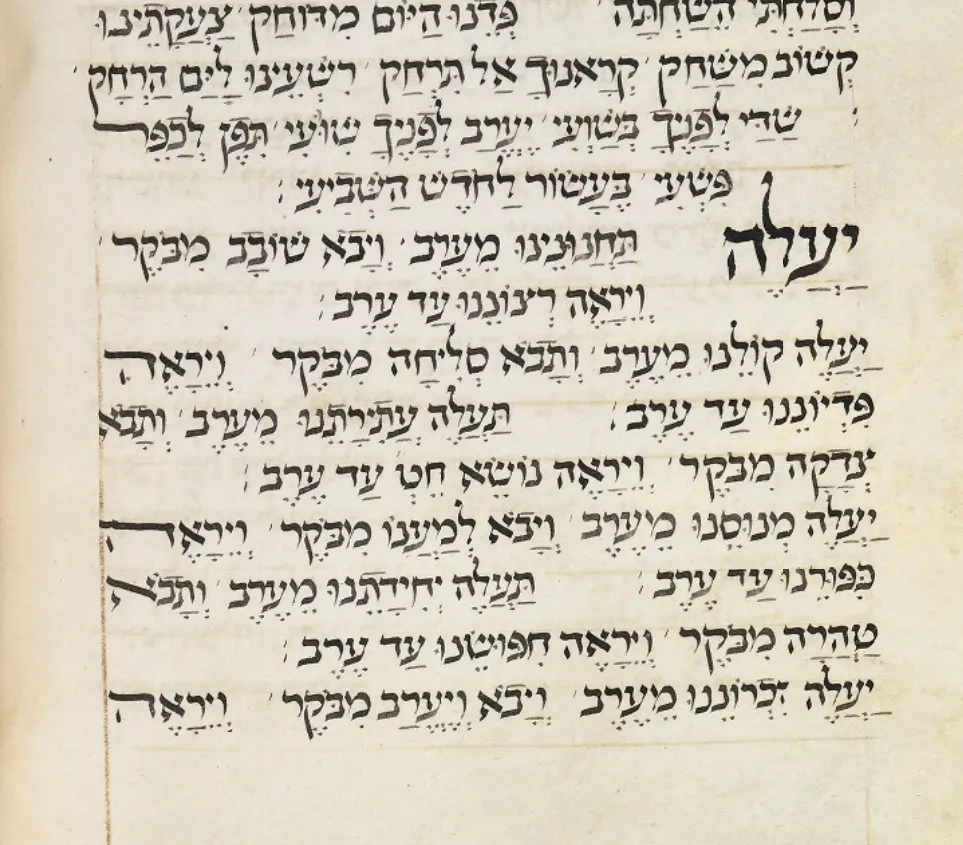 וְסָלַחְתִּי הִשַּׁחְתָּה פְּדֵנוּ הַיּוֹם מִדּוֹחַק צַעֲקָתֵינוּ
קְשׁוֹב מִשַּׁחַק קְרָאנוּךָ אַל תִּרְחַק רִשְׁעֵינוּ לַיָּם הַרְחַק
שַׁדַּי לְפָנֶיךָ בְּשַׁוְעִי יֶעֱרַב לְפָנֶיךָ שִׁוּעִי תִּפֶן לְכַפֵּר
פִּשְׁעִי בֶּעָשׂוֹר לַחֹדֶשׁ הַשְּׁבִיעִי :
יַעֲלֶה תַּחֲנוּנֵינוּ מֵעֶרֶב וְיָבֹא שׁוֹבָב מִבֹּקֶר
וְיֵרָאֶה רִצּוֹנֵנוּ עַד עֶרֶב :
יַעֲלֶה קוֹלֵנוּ מֵעֶרֶב וְתָבֹא סְלִיחָה מִבֹּקֶר וְיֵרָאֶה
פִּדְיוֹנֵנוּ עַד עֶרֶב : תַּעֲלֶה עֲתִירָתֵנוּ מֵעֶרֶב וְתָבֹא
צְדָקָה מִבֹּקֶר וְיֵרָאֶה נוֹשֵׂא חֵטְ עַד עֶרֶב :
יַעֲלֶה מְנוּסֵנוּ מֵעֶרֶב וְיָבֹא לְמַעֲנוֹ מִבֹּקֶר וְיֵרָאֶה
כִּפּוּרֵנוּ עַד עֶרֶב : תַּעֲלֶה יְחִידָתֵנוּ מֵעֶרֶב וְתָבֹא
טָהֳרָה מִבֹּקֶר וְיֵרָאֶה חִפּוּשֵׂנוּ עַד עֶרֶב :
יַעֲלֶה זִכְרוֹנֵנוּ מֵעֶרֶב וְיָבֹא וְיֶעֱרַב מִבֹּקֶר וְיֵרָאֶה